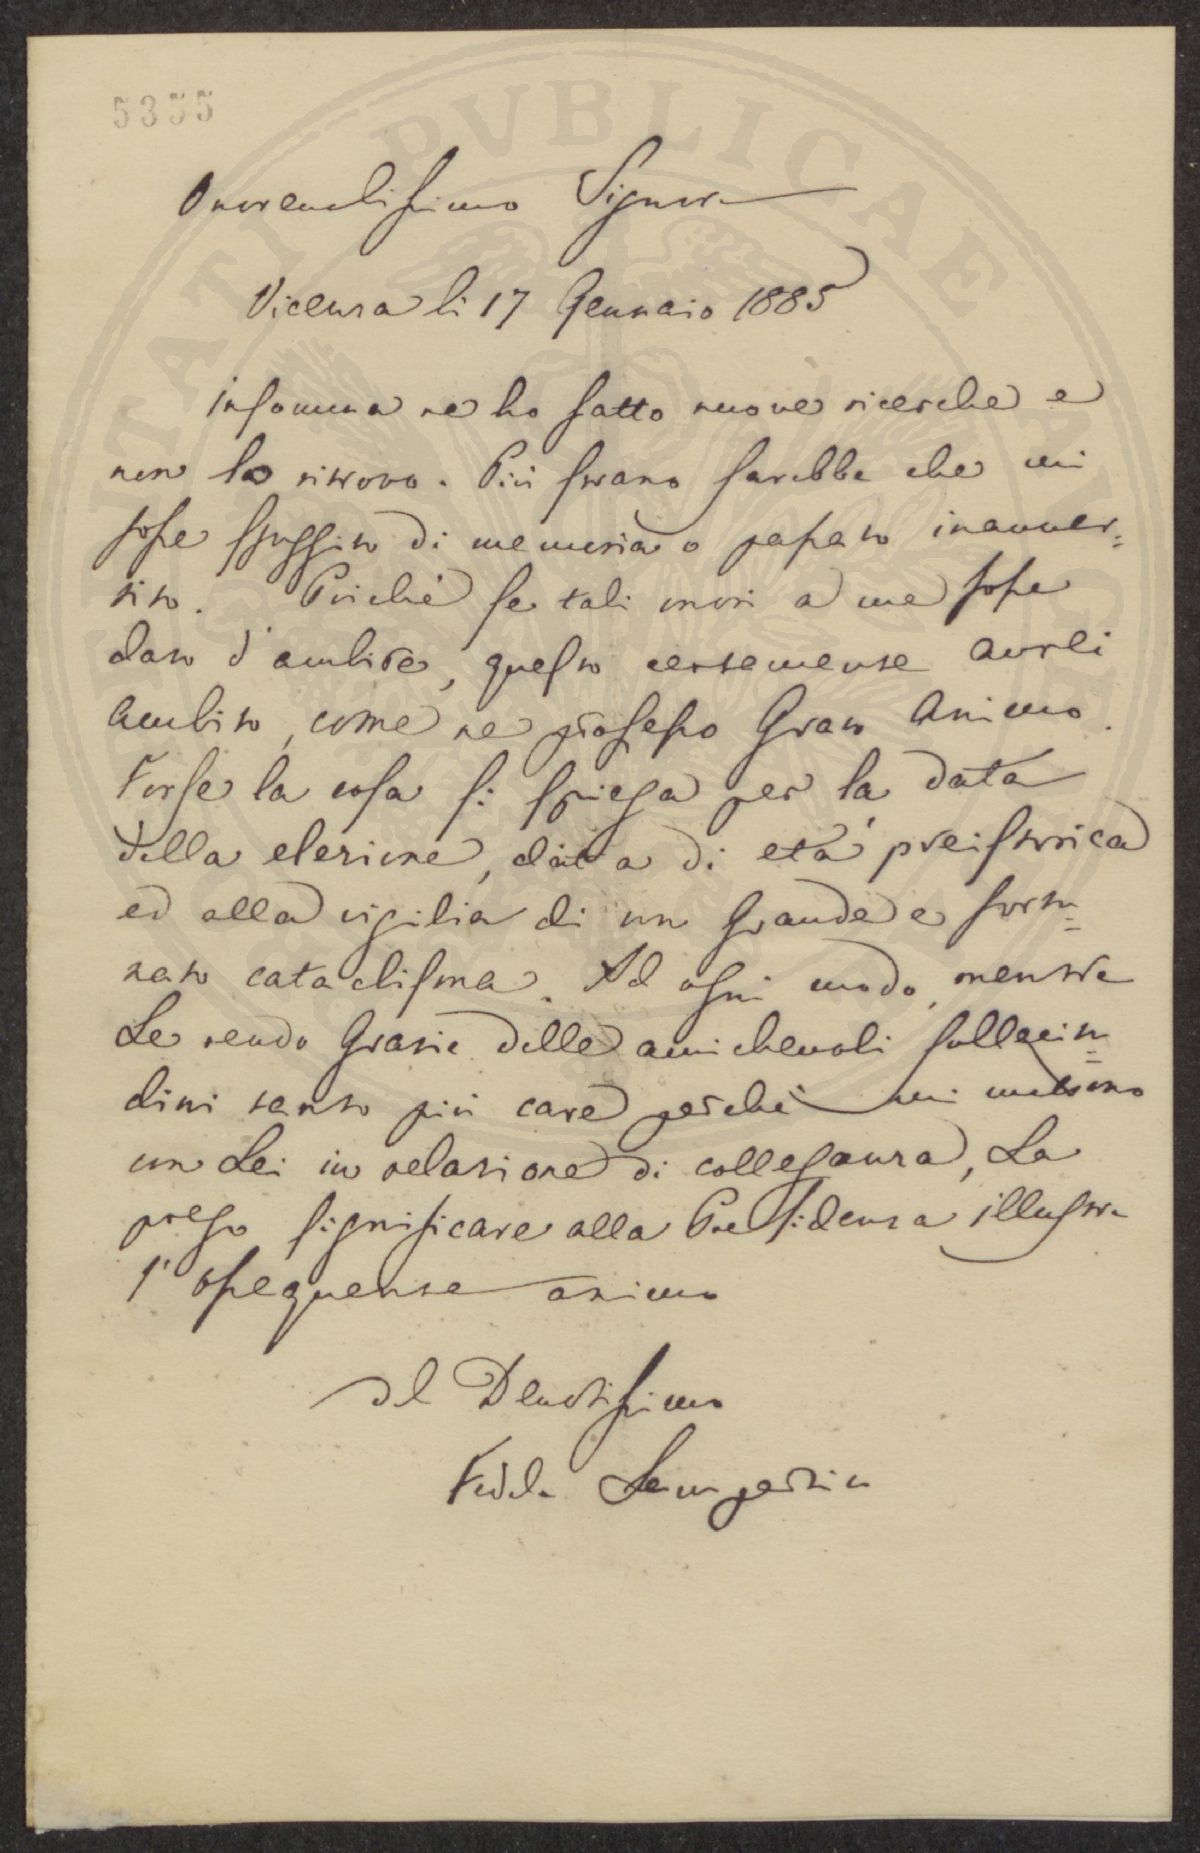 5355
PVBLICAE
Onorandissimo Signore
Vicenza li 17 Gennaio 1885
insomma ne ho fatto nuove ricerche e
non lo ritrovo. Più strano sarebbe che mi
fosse sfuggito di memoria o passato inavver=
tito. Poiché se tali onori a me fosse
dato d'ambire, questo certamente avrei
ambito, come ne professo Grato animo.
Forse la cosa si spiega per la data
della elezione, data di età preistorica
ed alla vigilia di un Grande e fortu=
nato cataclisma. Ad ogni modo, mentre
Le rendo Grazie delle amichevoli sollecitu=
dini tanto più care perché mi mettono
con Lei in relazione di colleganza, La
prego significare alla Presidenza illustre
l'ossequente animo
del Devotissimo
Fedele Lampertico